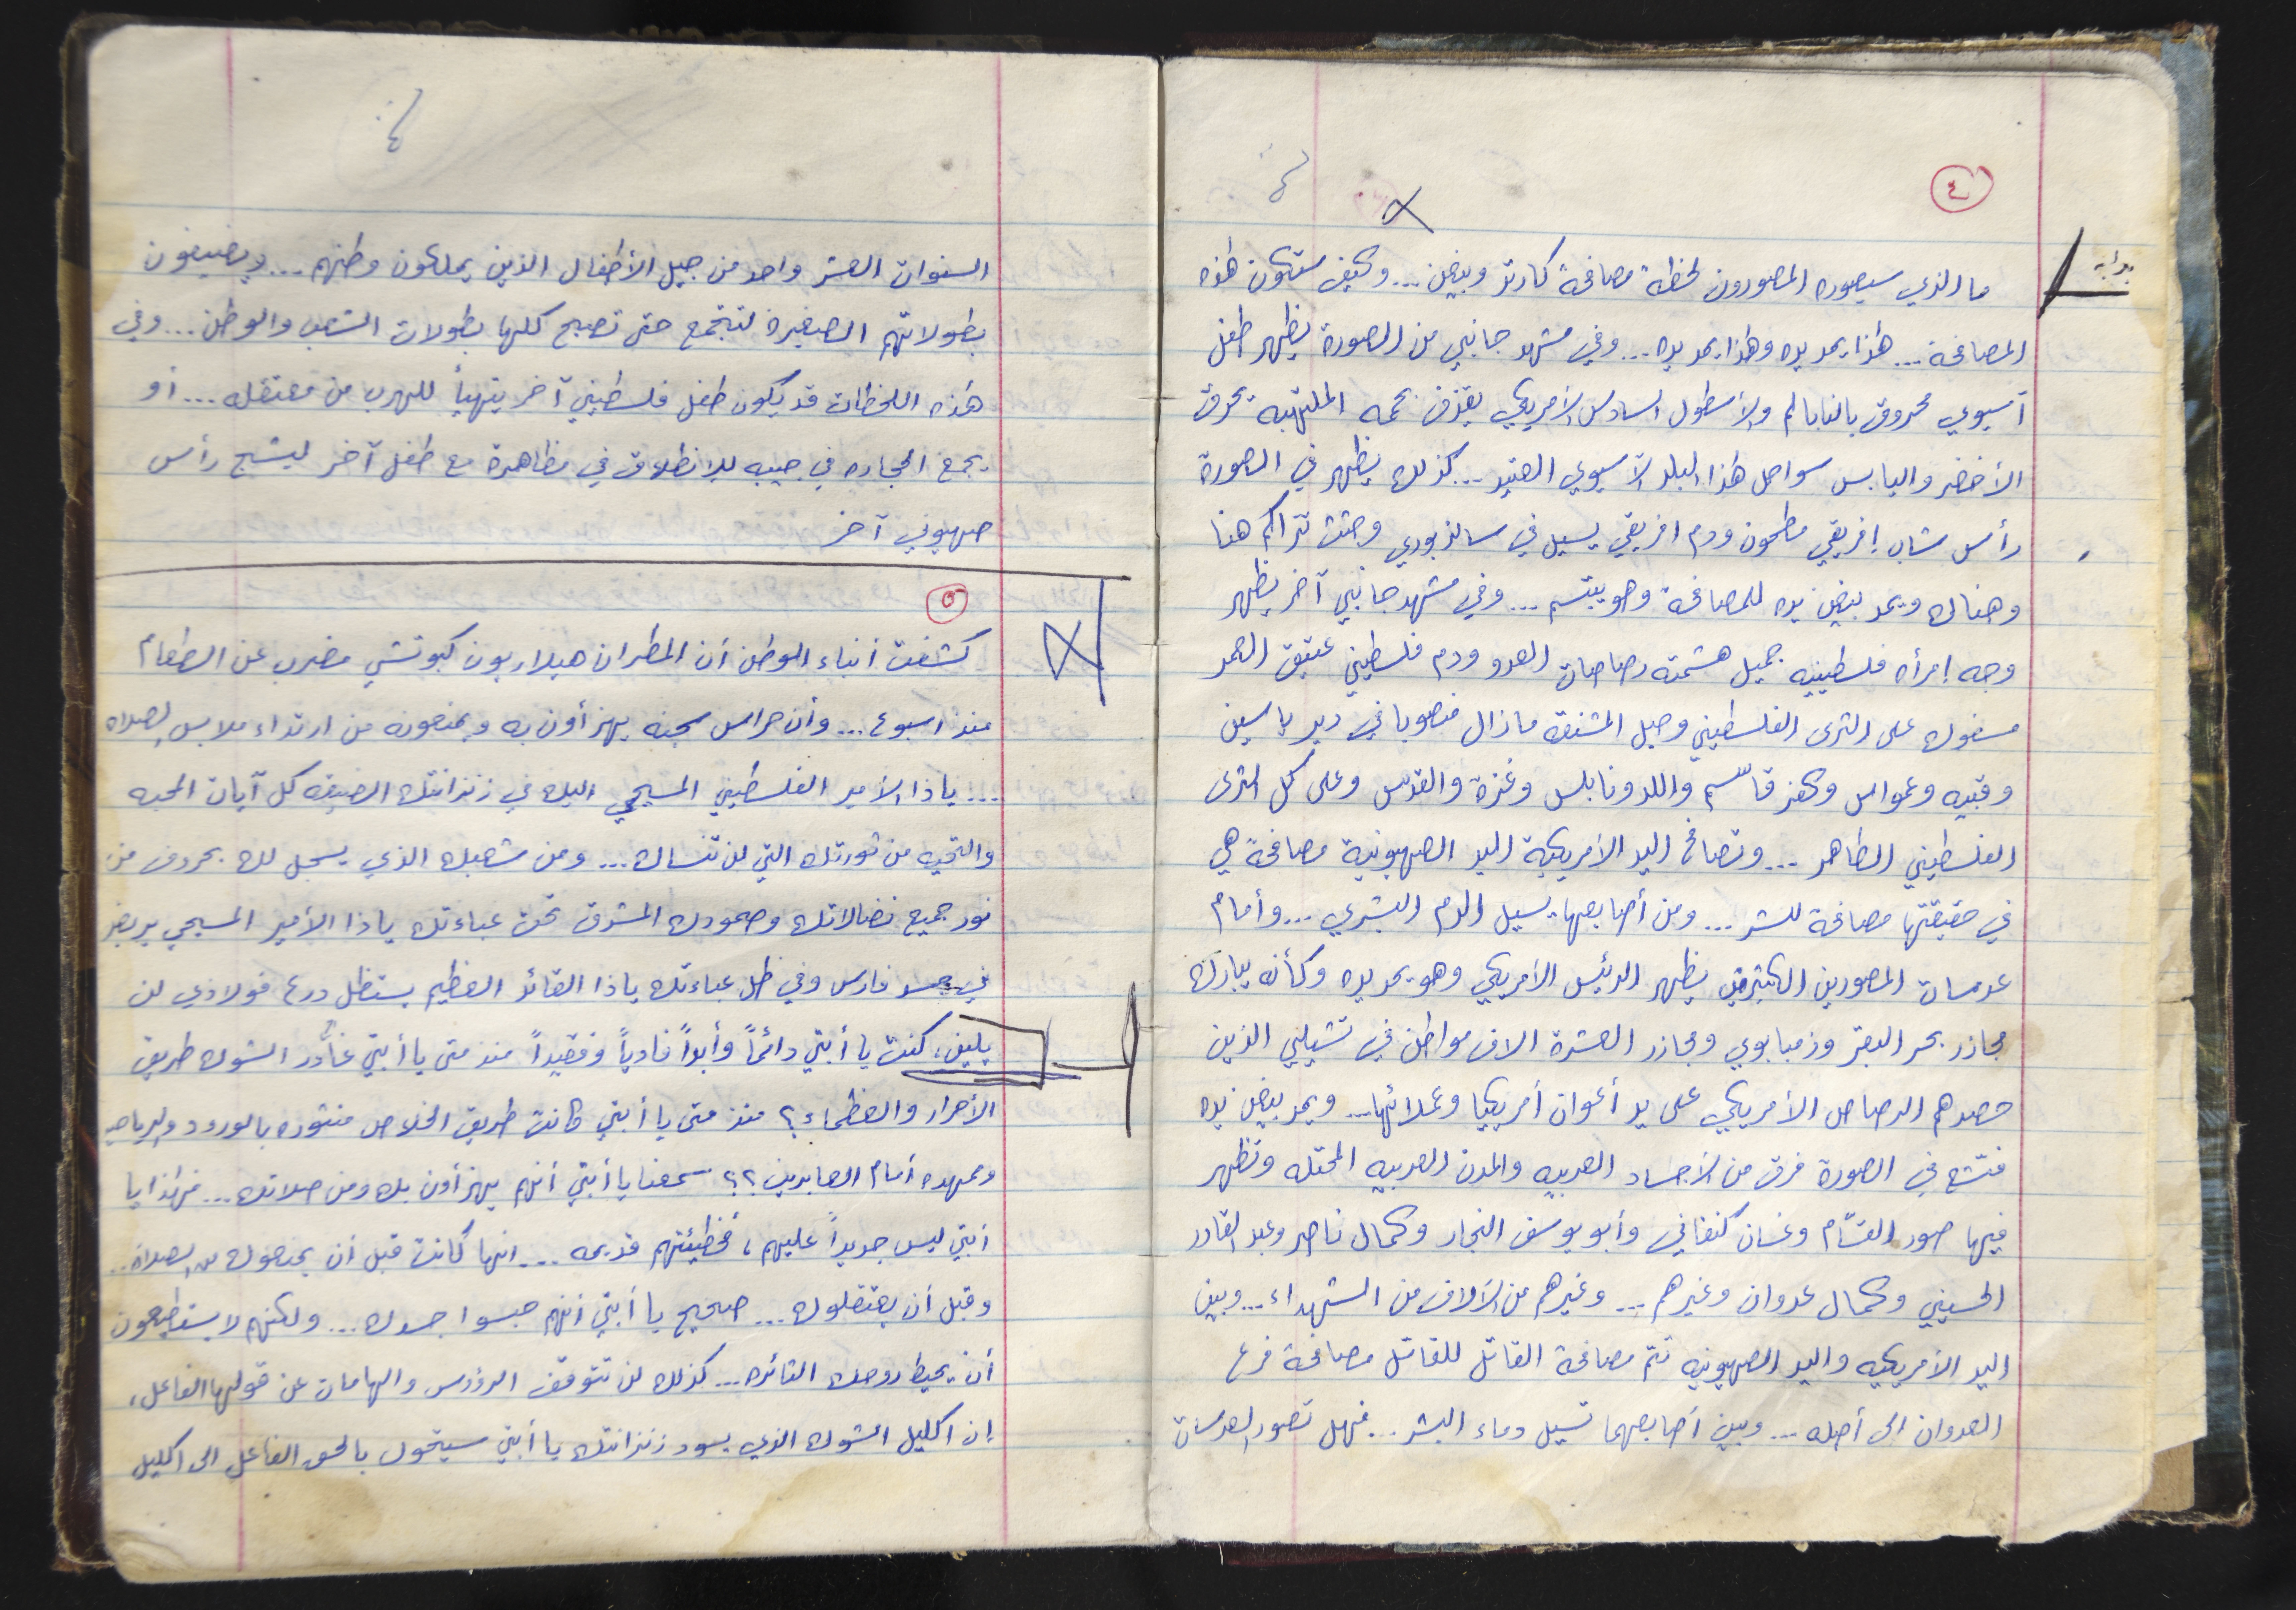 ٤
بداية
ما الذي سيصوره المصورون لحظة مصافحة كارتر وبيغن ... وكيف ستكون هذه
المصافحة ... هذا يمد يده وهذا يمد يده ... وفي مشهد جانبي من الصورة يظهر طفل
آسيوي محروق بالنابالم والأسطول السادس الأمريكي يقذف بحممه الملتهبه تحرق
الأخضر واليابس سواحل هذا البلد الآسيوي العتيد ... كذلك يظهر في الصورة
رأس شاب إفريقي مطحون ودم افريقي يسيل في سالزبوري وجثث تتراكم هنا
وهناك ويمد بيغن يده للمصافحة وهو يبتسم ... وفي مشهد جانبي آخر يظهر
وجه إمرأه فلسطينيه جميل هشمته رصاصات العدو ودم فلسطيني عتيق العمر
مسفوك على الثرى الفلسطيني وحبل المشنقه مازال منصوبا في دير ياسين
وقبيه وعمواس وكفر قاسم واللد ونابلس وغزة والقدس وعلى كل الثرى
الفلسطيني الطاهر ... وتصافح اليد الأمريكية اليد الصهيونية مصافحة هي
في حقيقتها مصافحة للشر ... ومن أصابعها يسيل الدم البشري ... وأمام
عدسات المصورين الكثيرين يظهر الرئيس الأمريكي وهو يمد يده وكأنه يبارك
مجازر بحر البقر وزمبابوي ومجازر العشرة الاف مواطن في تشيلي الذين
حصدهم الرصاص الأمريكي على يد أعوان أمريكيا وعملائها ... ويمد بيغن يده
فتشع في الصورة فرق من الأجساد العربيه والمدن العربيه المحتله وتظهر
فيها صور القسّام وغسان كنفاني وأبو يوسف النجار وكمال ناصر وعبد القادر
الحسيني وكمال عدوان وغيرهم ... وغيرهم من الآلاف من الشهداء ... وبين
اليد الأمريكيه واليد الصهيونيه تتم مصافحة القاتل للقاتل مصافحة فرع
العدوان الى أصله ... وبين أصابعهما تسيل دماء البشر ... فهل تصور العدسات
السنوات العشر واحد من جيل الأطفال الذين يملكون وطنهم ... ويضيفون
بطولاتهم الصغيرة لتتجمع حتى تصبح كلها بطولات الشعب والوطن ... وفي
هذه اللحظات قد يكون طفل فلسطيني آخر يتهيأ للهرب من معتقله ... أو
يجمع الحجاره في جيبه للإنطلاق في مظاهرة مع طفل آخر ليشج رأس
صهيوني آخر
٥
كشفت أنباء الوطن أن المطران هيلاريون كبوتشي مضرب عن الطعام
منذ اسبوع ... وأن حراس سجنه يهزأون به ويمنعونه من ارتداء ملابس الصلاه
... يا ذا الأمير الفلسطيني المسيحي اليك في زنزانتك الضيقه كل آيات المحبه
والتحيه من ثورتك التي لن تنساك ... ومن شعبك الذي يسجل لك بحروف من
نور جميع نضالاتك وصمودك المشرق تحت عباءتك يا ذا الأمير المسيحي يربض
في جسد فارس وفي ظل عباءتك يا ذا القائد العظيم يستظل درع فولاذي لن
يلين ، كنت يا أبتي دائماً وأبداً فادياً وفقيداً منذ متى يا أبتي غادر الشوك طريق
الأحرار والعظماء ؟ منذ متى يا أبتي كانت طريق الخلاص منثوره بالورود والرياحين
وممهده أمام العابرين ؟؟ سمعنا يا أبتي أنهم يهزأون بك ومن صلاتك ... فهذا يا
أبتي ليس جديداً عليهم ، فخطيئتهم قديمه ... انها كانت قبل أن يمنعوك من الصلاة ..
وقبل أن يعتقلوك ... صحيح يا أبتي أنهم حبسوا جسدك ... ولكنهم لا يستطيعون
أن يحيط روحك الثائره ... كذلك لن تتوقف الرؤوس والهامات عن قولها الفاعل ،
إن اكليل الشوك الذي يسود زنزانتك يا أبتي سيتحول بالحق الفاعل الى اكليل